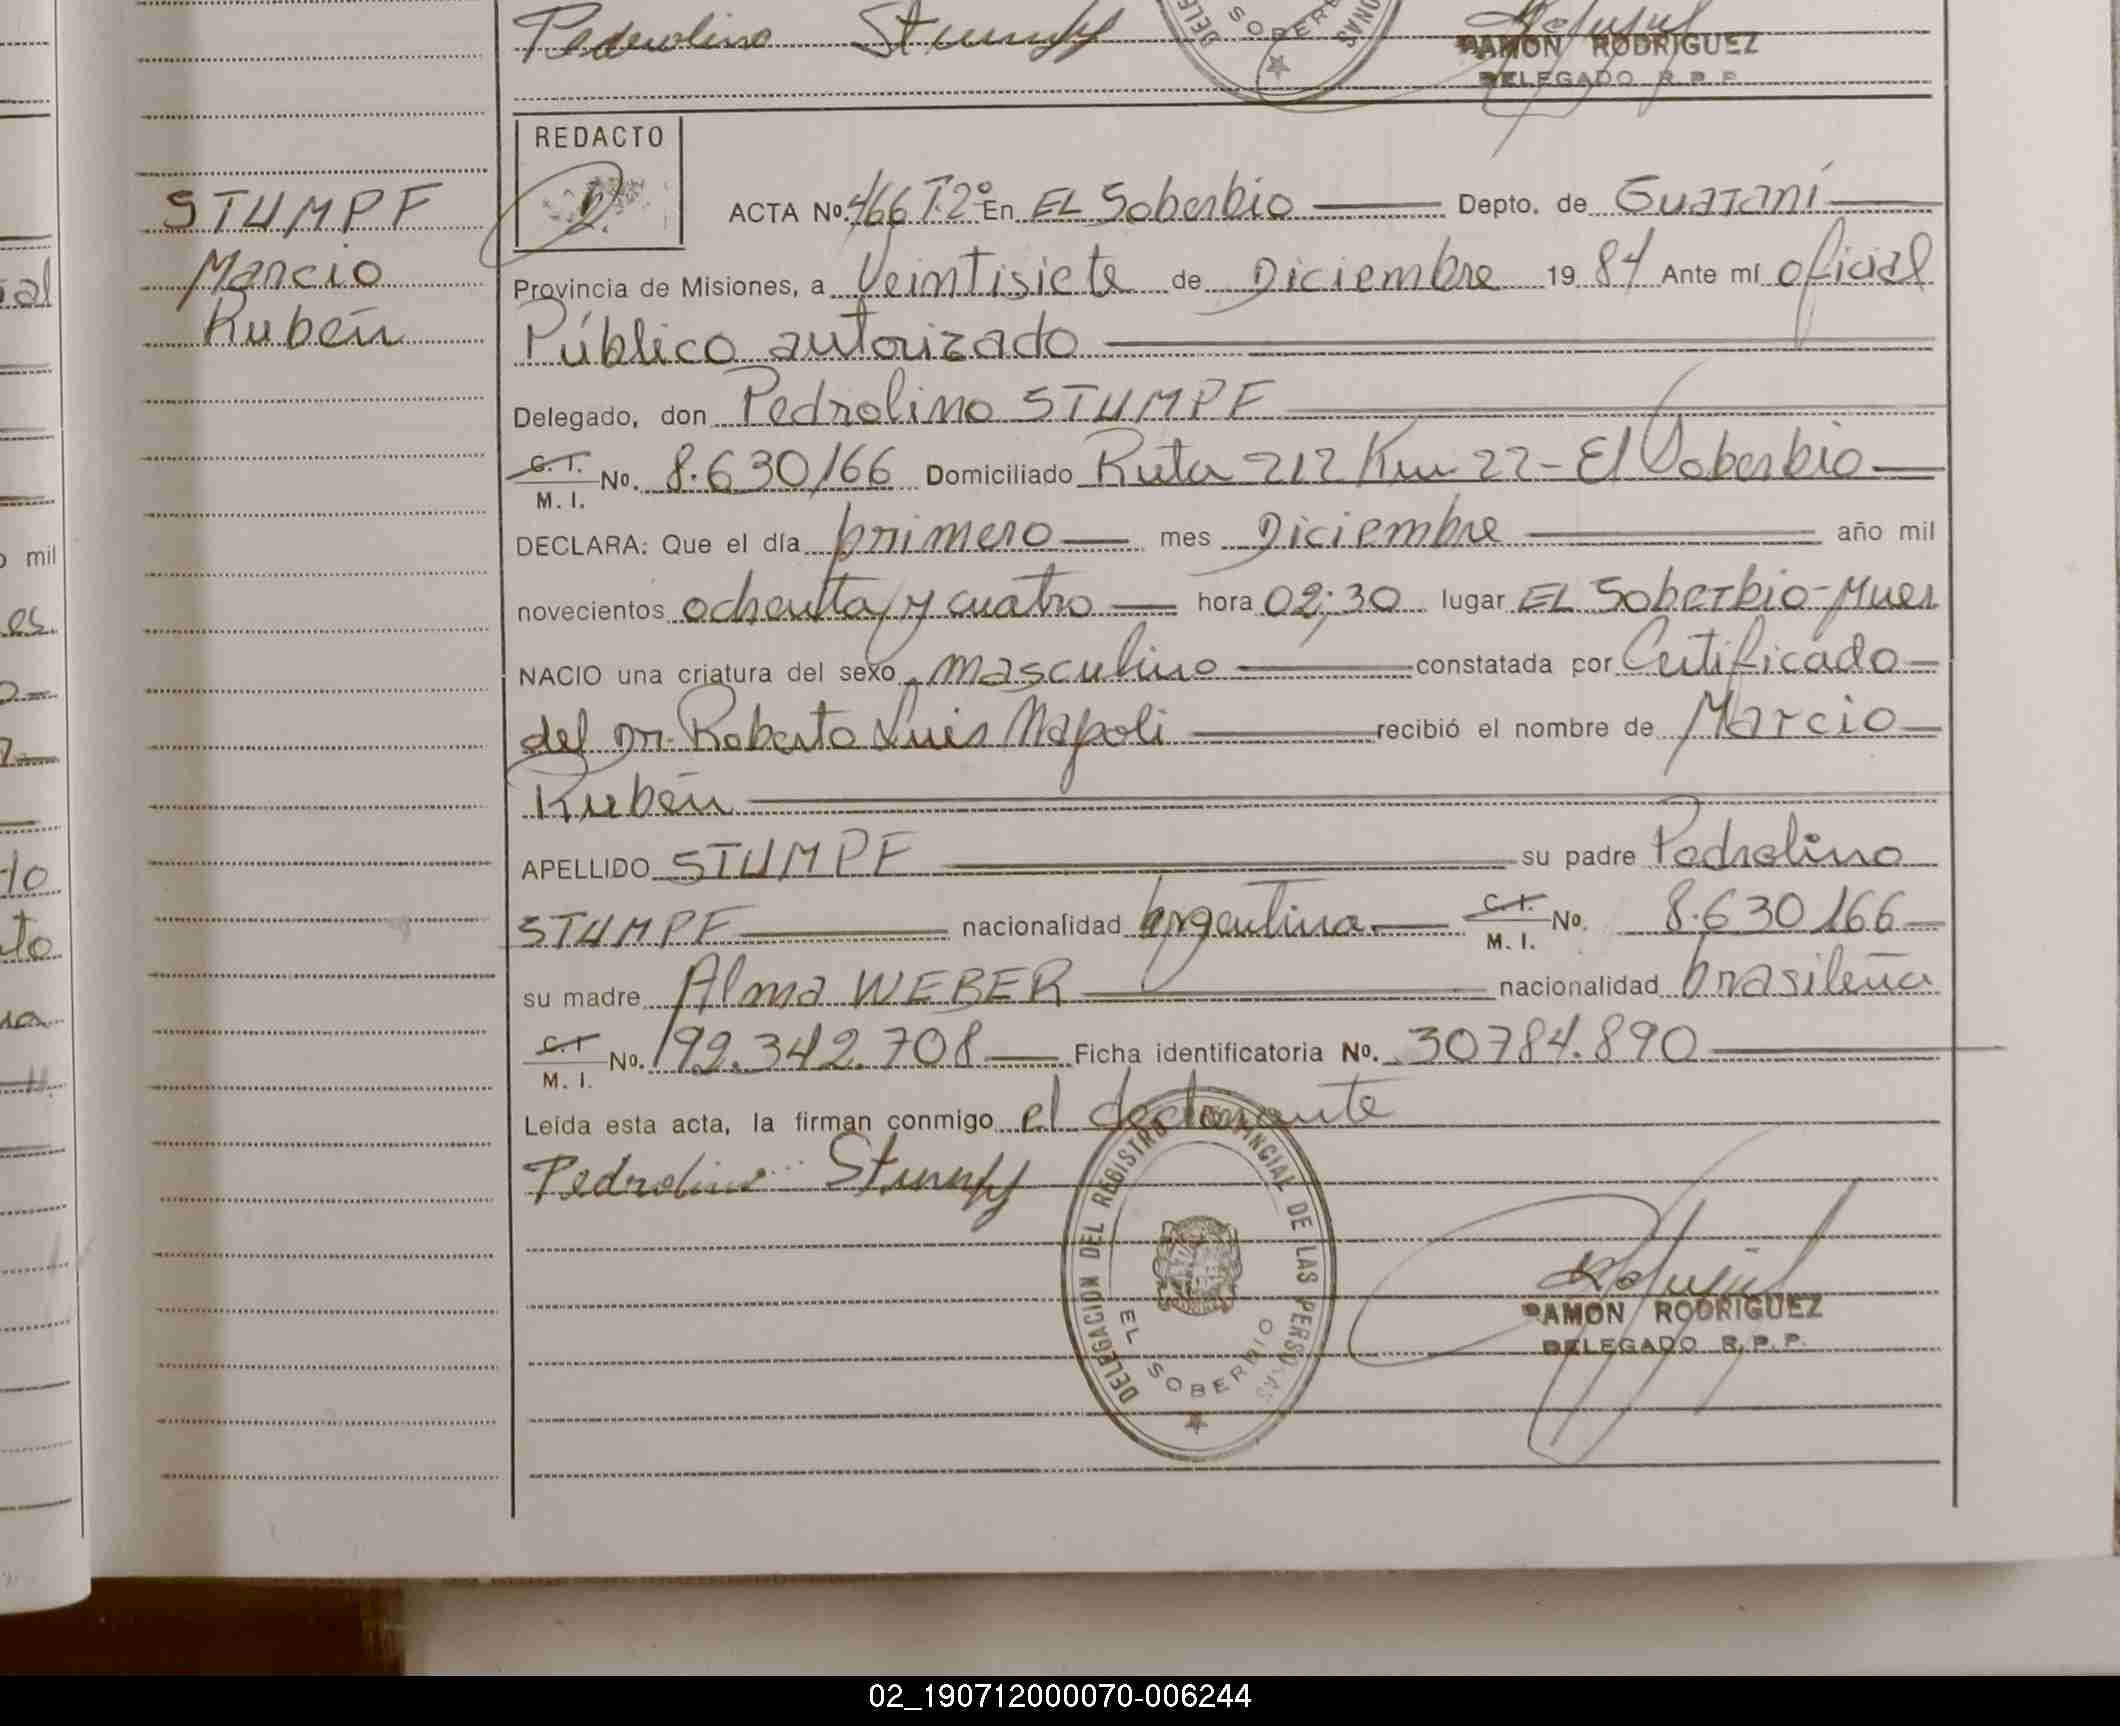 Pedrolino Stumpf
SOBER
RAMON RODRIGUEZ
DELEGADO R.P.P.
REDACTO
STUMPF
Marcio
Rubén
ACTA No. 466 T.2º En EL Soberbio Depto. de Guaraní
Provincia de Misiones, a Veintisiete de Diciembre 19 84 Ante mí oficial
Público autorizado
Delegado, don Pedrolino STUMPF
C. I. M. I. No. 8.630/166 Domiciliado Ruta 212 Km 22 - El Soberbio
DECLARA: Que el día primero mes Diciembre año mil
novecientos ochenta y cuatro hora 02:30 lugar EL Soberbio-Mnes
NACIO una criatura del sexo masculino constatada por Certificado
del Dr. Roberto Luis Napoli recibió el nombre de Marcio
Rubén
APELLIDO STUMPF su padre Pedrolino
STUMPF nacionalidad Argentina C. I. M. I. No. 8.630.166
su madre Alma WEBER nacionalidad brasileña
C. I. M. I. No. 92.342.708 Ficha identificatoria No. 30784.890
Leída esta acta, la firman conmigo el declarante
Pedrolino Stumpf
DELEGACION DEL REGISTRO PROVINCIAL DE LAS PERSONAS
EL SOBERBIO
RAMON RODRIGUEZ
DELEGADO R.P.P.
al
mil
es
to
02_190712000070-006244